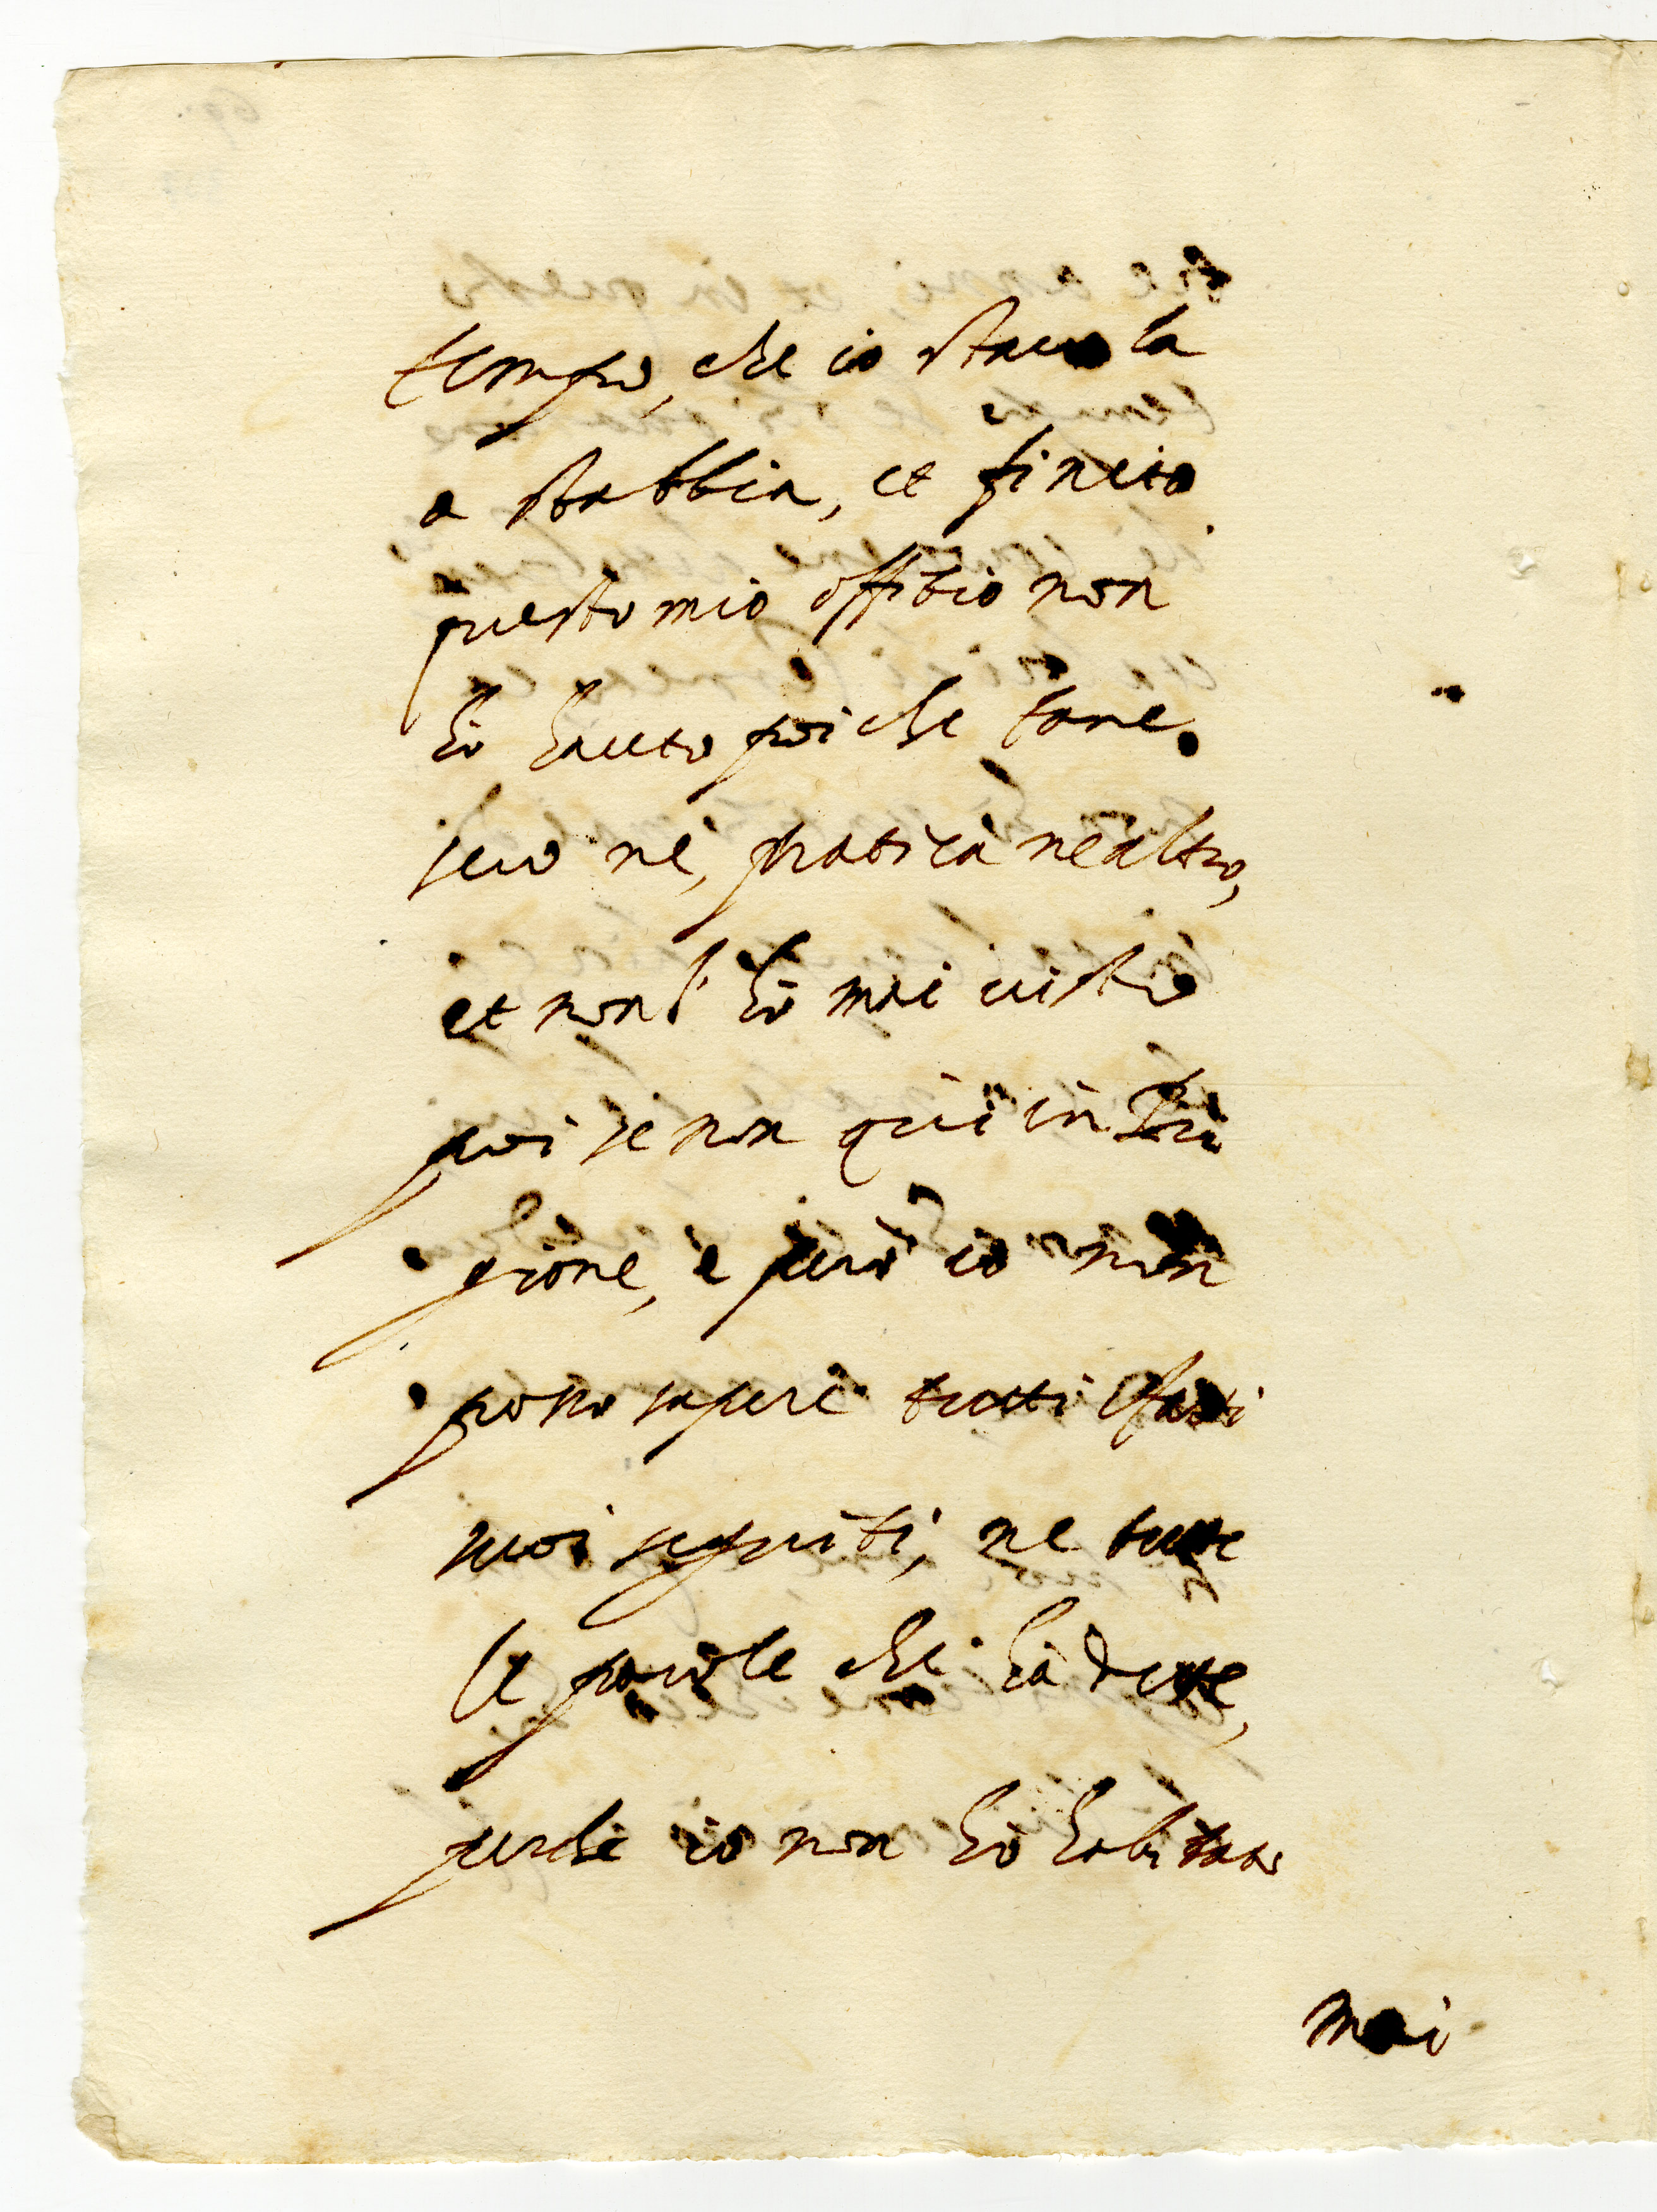 tempo, che io stavo la
a stabbia, et finito
questo mio offitio non
hò hauto poi che fare
seco nè, pratica ne altro,
et non l' hò mai visto
poi se non quì in Pri
gione, è però io non
posso sapere tutti i fatti
suoi seguiti, ne tutte
le parole che hà dette,
perche io non hò habitato
mai